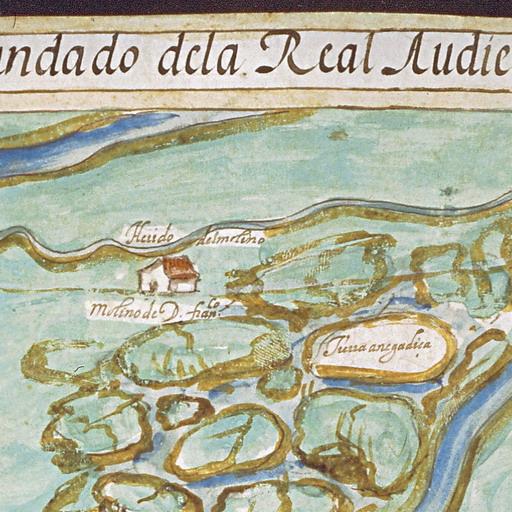 andado dela Real Audie
Herido delmolino
Molino de D. franco
Tierra anegadiça